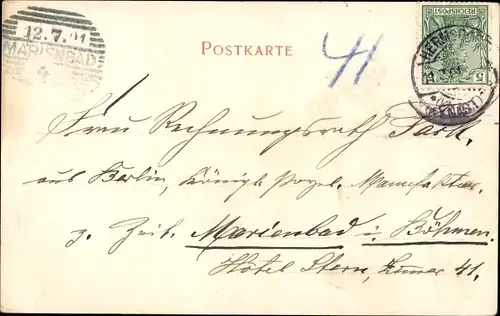 12.7.01
MARIENBAD
POSTKARTE
41
REICHSPOST
5
Frau Rechnungsrath
aus Berlin, Königl. Porzel. Manufaktur,
z. Zeit. Marienbad i. Böhmen.
Hôtel Stern, Zimmer 41.